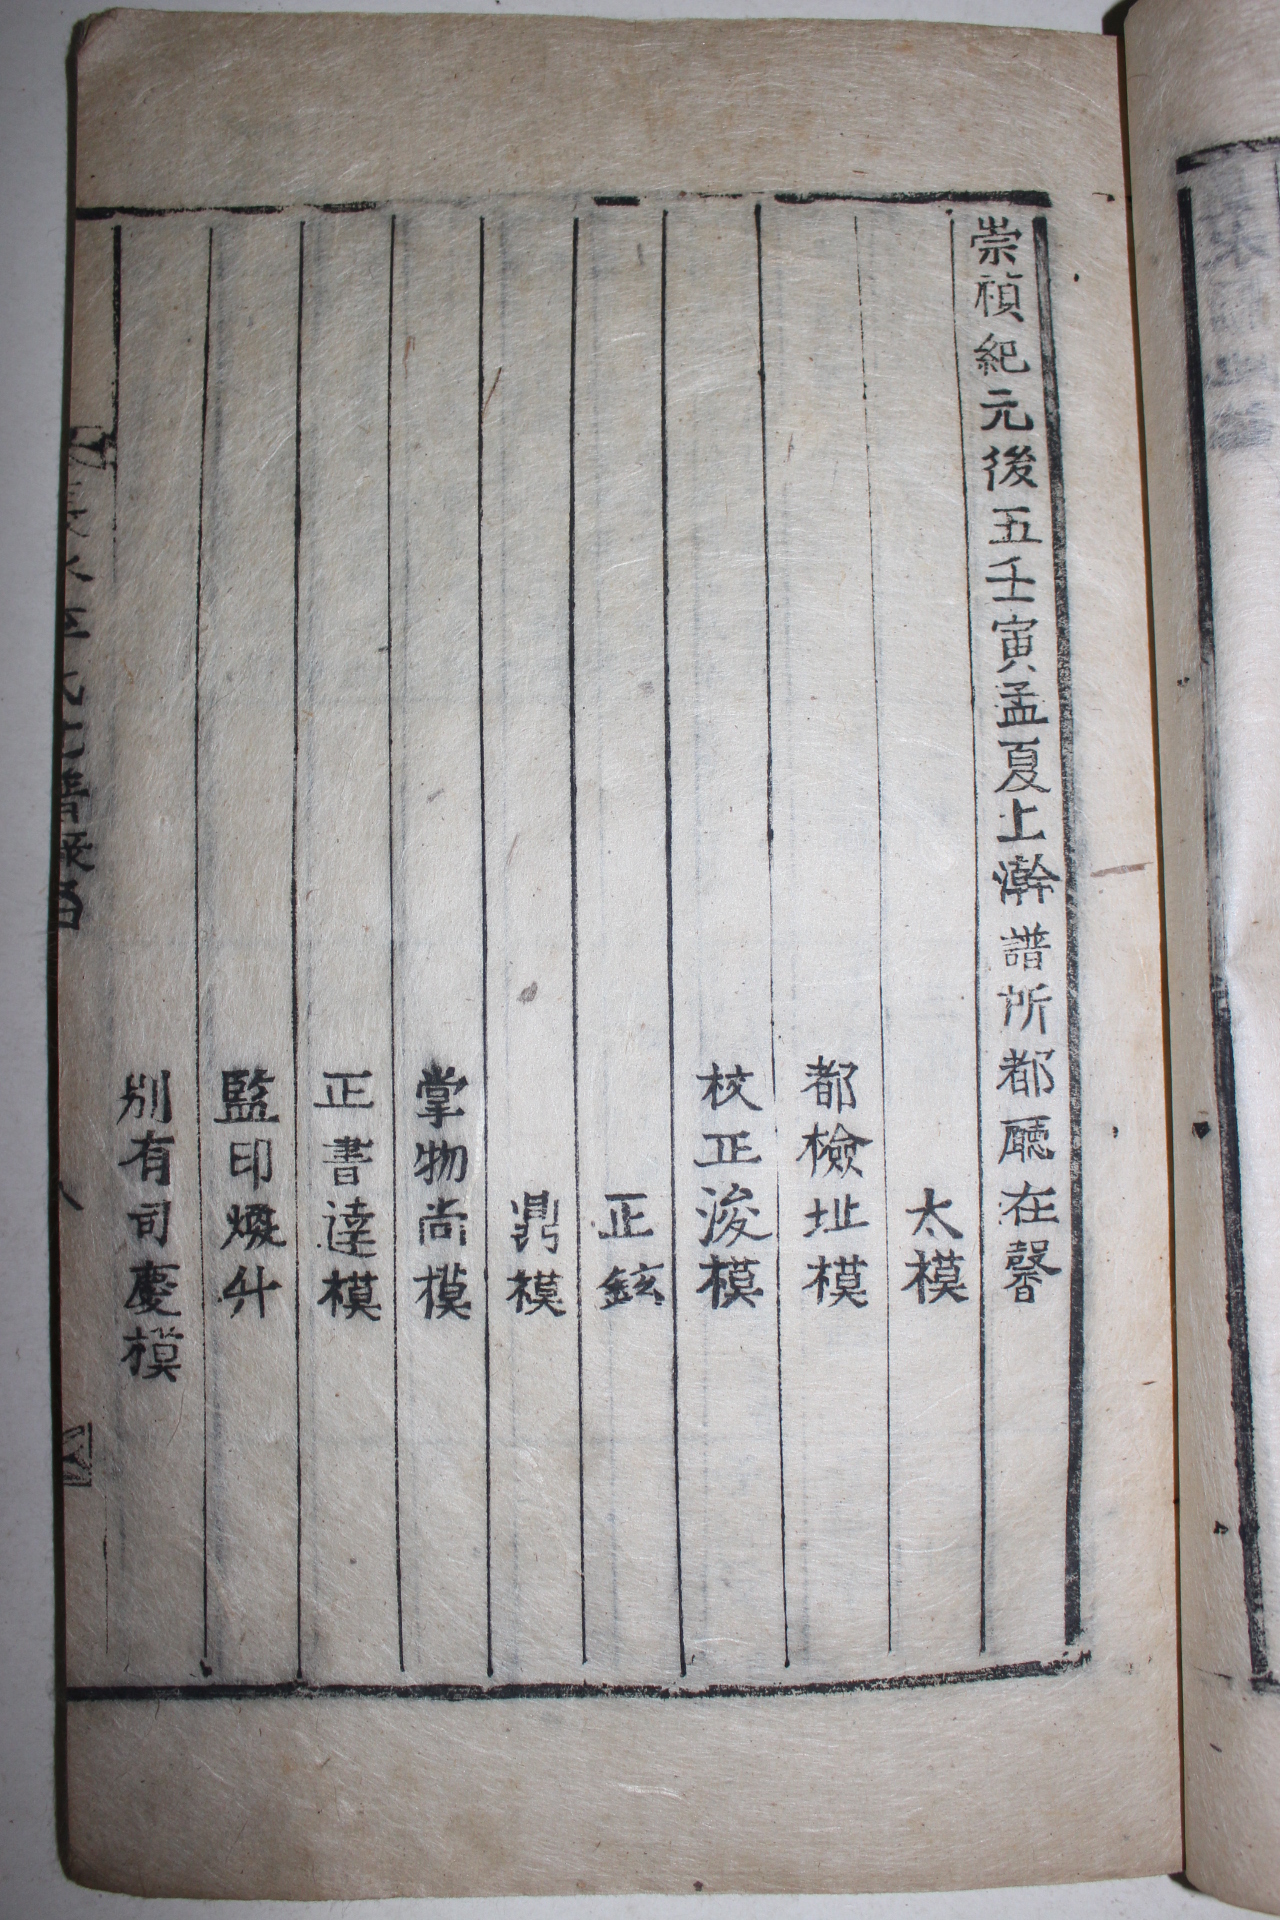 崇禎紀元後五壬寅孟夏上澣譜所都廳在馨
太模
都檢址模
校正浚模
正鉉
鼎模
掌物尚模
正書達模
監印煥升
別有司慶模